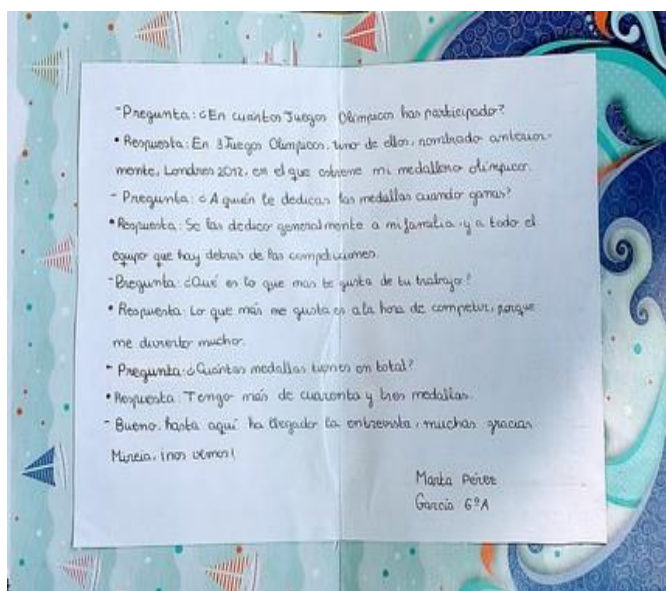 - Pregunta: ¿En cuántos Juegos Olímpicos has participado?
• Respuesta: En 3 Juegos Olímpicos, uno de ellos, nombrado anterior-
mente, Londres 2012, en el que obtiene mi medallero olímpico.
- Pregunta: ¿A quién te dedicas las medallas cuando ganas?
• Respuesta: Se las dedico generalmente a mi familia y a todo el
equipo que hay detrás de las competiciones.
- Pregunta: ¿Qué es lo que más te gusta de tu trabajo?
• Respuesta: Lo que más me gusta es a la hora de competir, porque
me divierto mucho.
- Pregunta: ¿Cuántas medallas tienes en total?
• Respuesta: Tengo más de cuarenta y tres medallas.
- Bueno, hasta aquí ha llegador la entrevista, muchas gracias
Mireia, ¡nos vemos!
Marta Pérez
García 6ºA